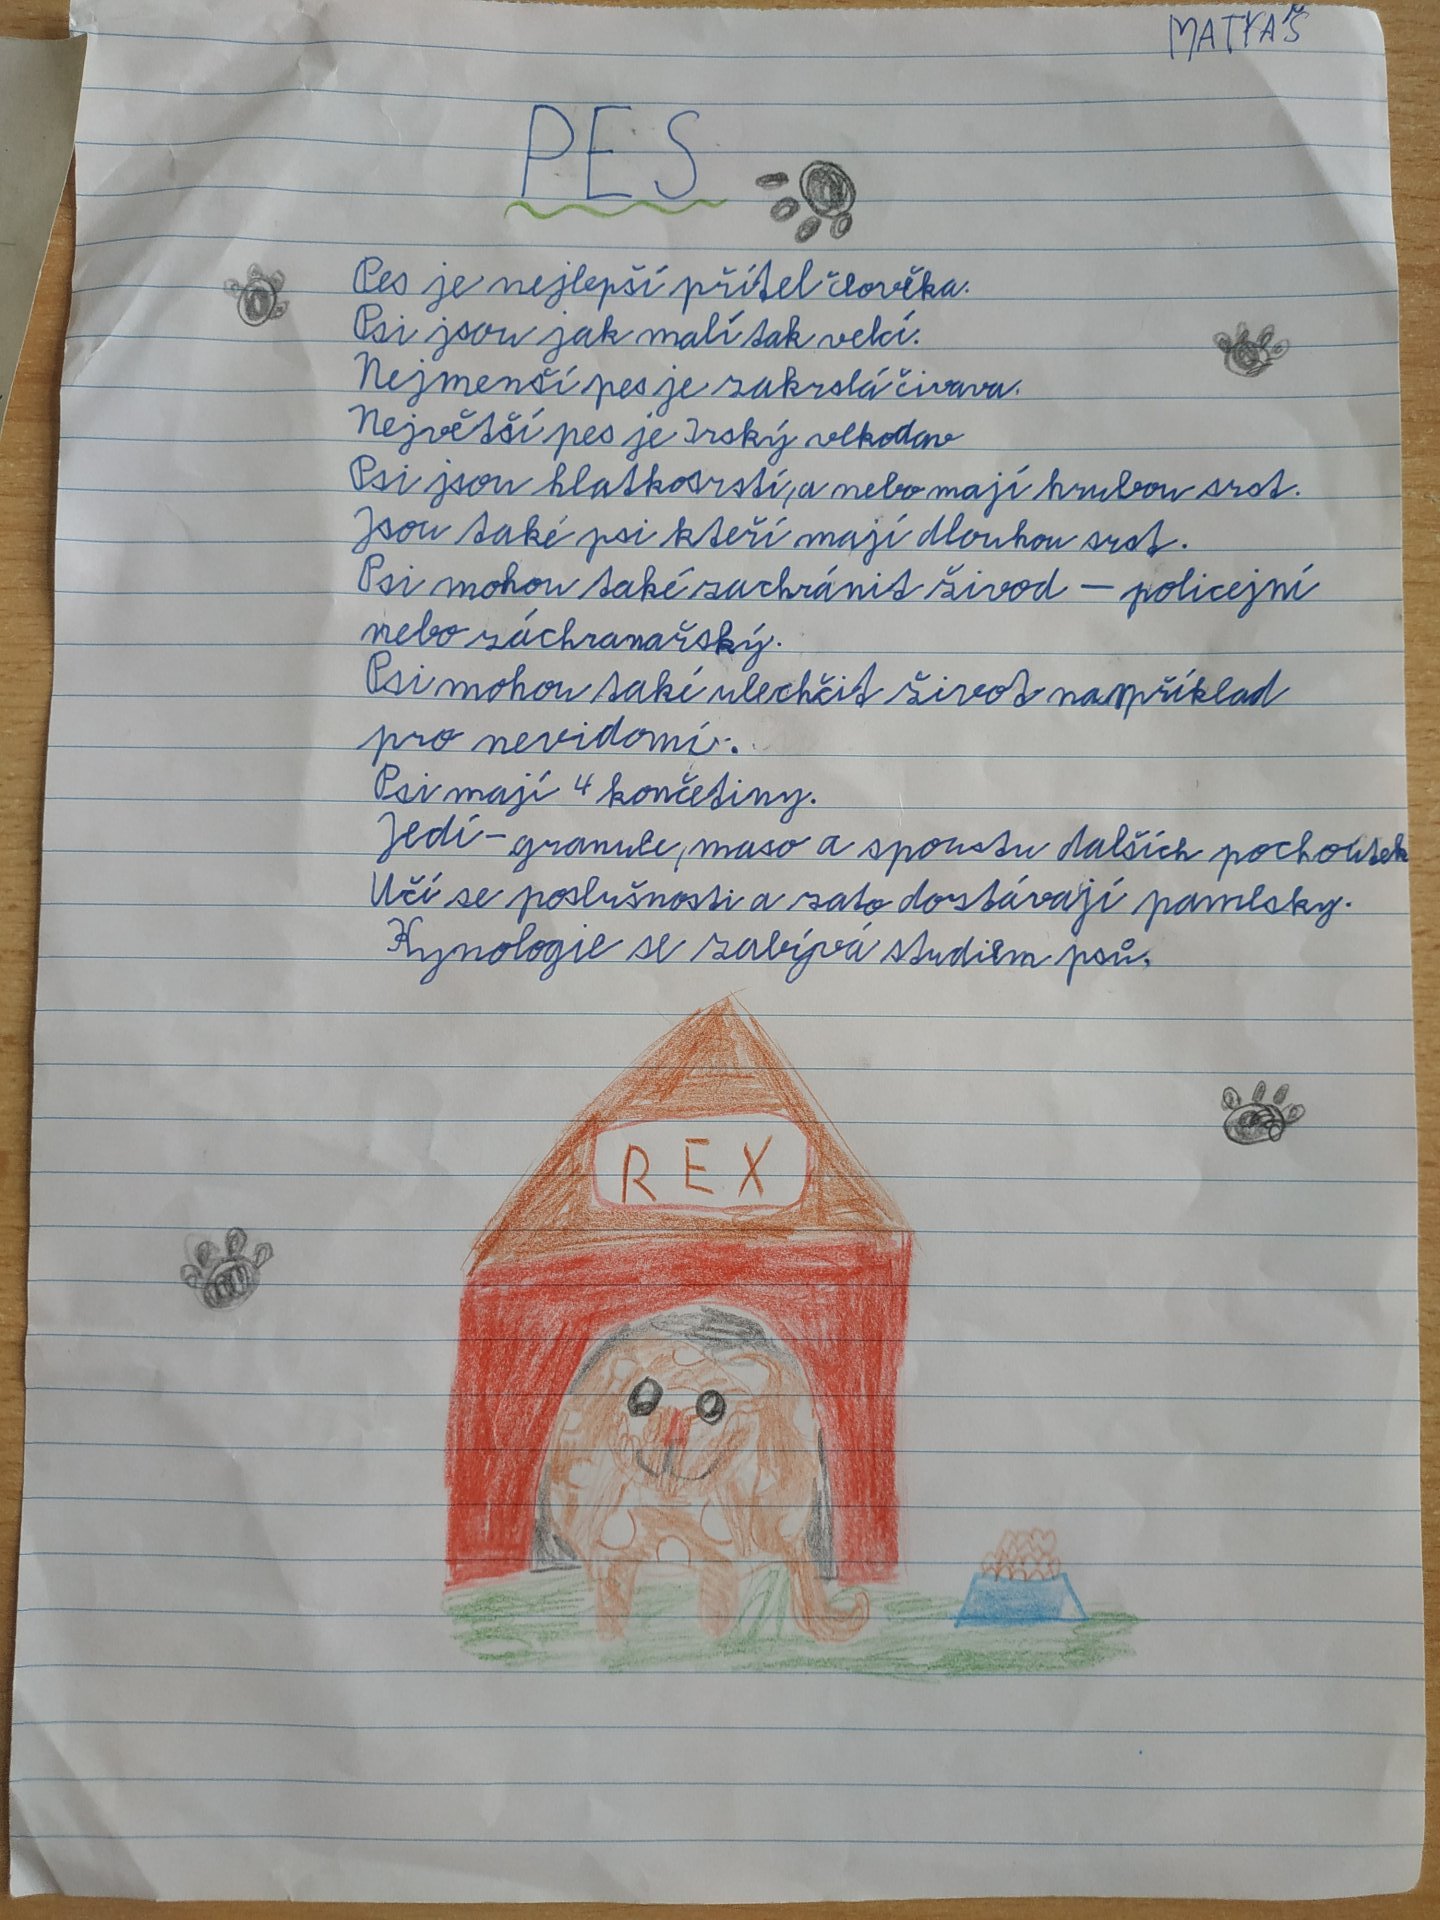 MATYÁŠ
PES
Pes je nejlepší přítel člověka.
Psi jsou jak malí tak velcí.
Nejmenší pes je zakrslá čivava.
Největší pes je Irský vlkodav
Psi jsou hlatkosrstí, a nebo mají hrubou srst.
Jsou také psi kteří mají dlouhou srst.
Psi mohou také zachránit živod – policejní
nebo záchranařský.
Psi mohou také ulechčit život například
pro nevidomí.
Psi mají 4 končetiny.
Jedí – granule, maso a spoustu dalších pochoutek
Učí se poslušnosti a zato dostávají pamlsky.
Kynologie se zabývá studiem psů.
REX